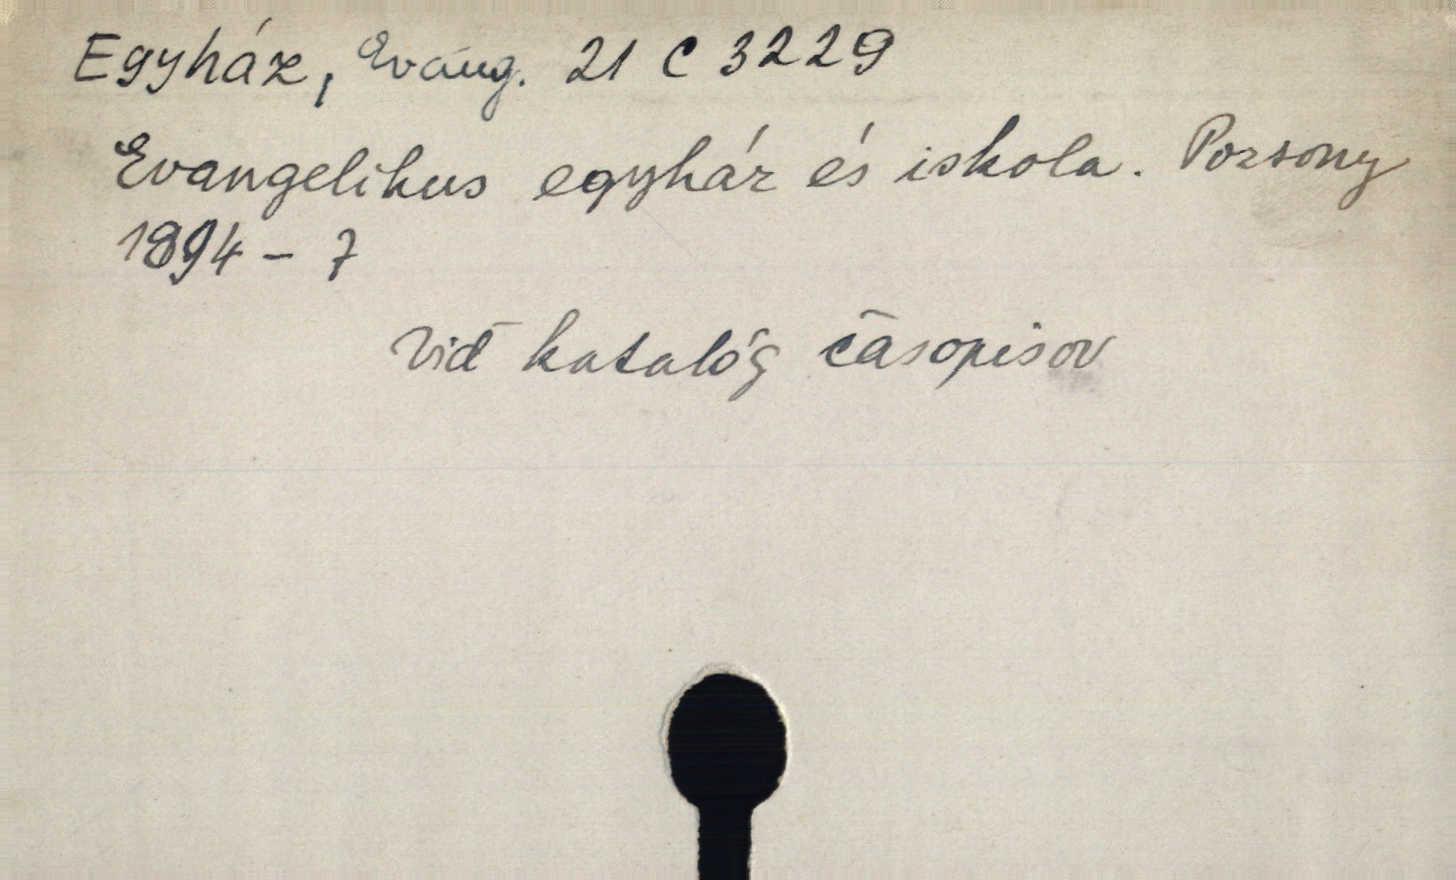 Egyház, Evang. 21 C 3229
Evangelikus egyház és iskola. Pozsony
1894 - 7
Viď katalóg časopisov